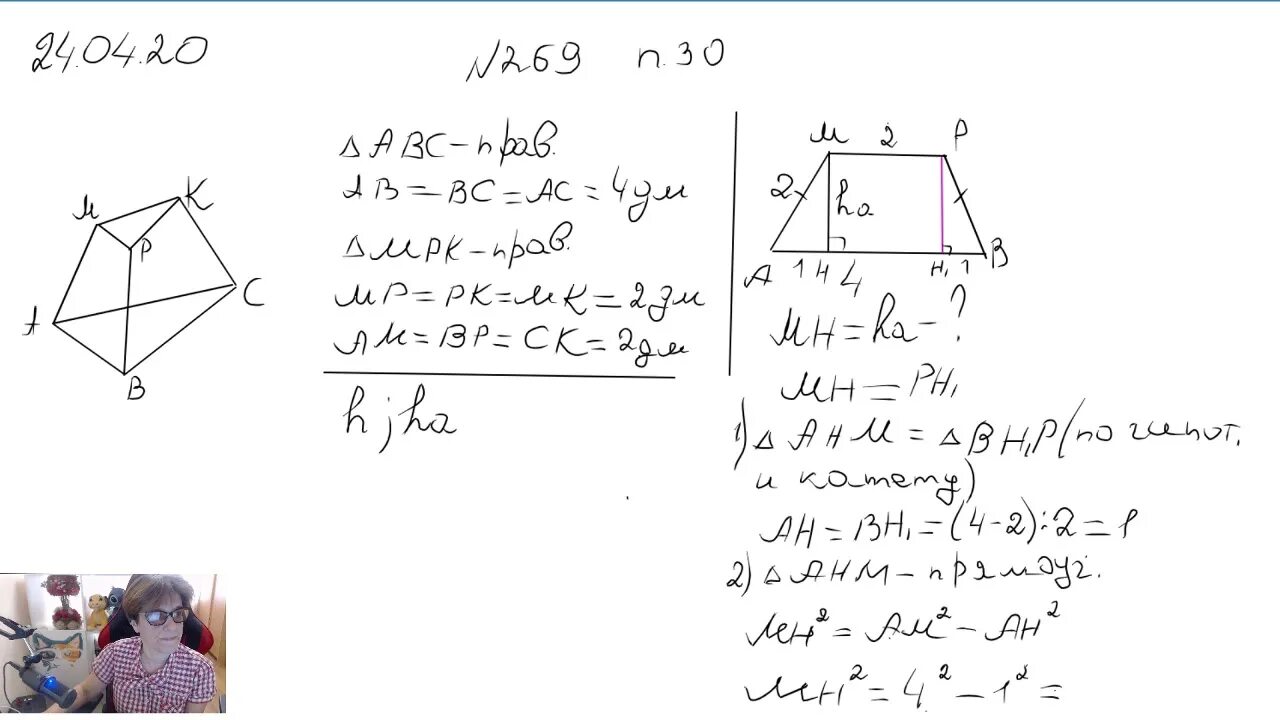 24.04.20
№269 п.30
М
К
Р
А
С
В
△ABC – прав.
AB = BC = AC = 4 дм
△MPK – прав.
MP = PK = MK = 2 дм
AM = BP = CK = 2 дм
h; ha
М 2 Р
2 ha
А 1 Н 4 Н₁ 1 В
MH = ha – ?
MH = PH₁
1) △AHM = △BH₁P (по гипот.
и катету)
AH = BH₁ = (4-2):2 = 1
2) △AHM – прямоуг.
MH² = AM² – AH²
MH² = 4² – 1² =